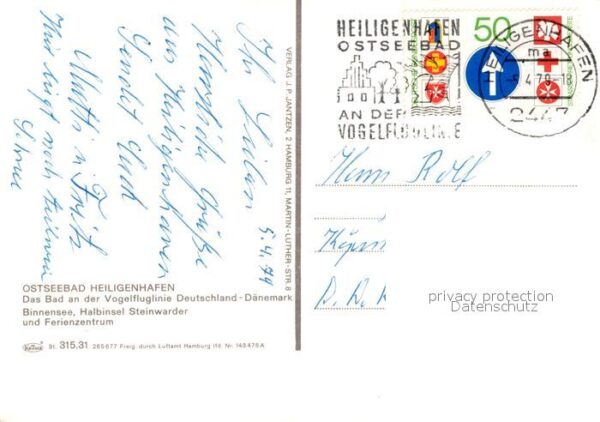 5.4.79
Ihr Lieben
Herzliche Grüße
aus Heiligenhafen
sendet Euch
Fritz
Hier liegt noch
Schnee
OSTSEEBAD HEILIGENHAFEN
Das Bad an der Vogelfluglinie Deutschland-Dänemark
Binnensee, Halbinsel Steinwarder
und Ferienzentrum
Krüger
St. 315.31 265677 Freig. durch Luftamt Hamburg Nr.
VERLAG J.P. JANTZEN, 2 HAMBURG 11, MARTIN-LUTHER-STR. 8
HEILIGENHAFEN
OSTSEEBAD
AN DER
VOGELFLUGLINIE
50
HEILIGENHAFEN
ma
-5.4.79-18
2447
Herrn Rolf
privacy protection
Datenschutz